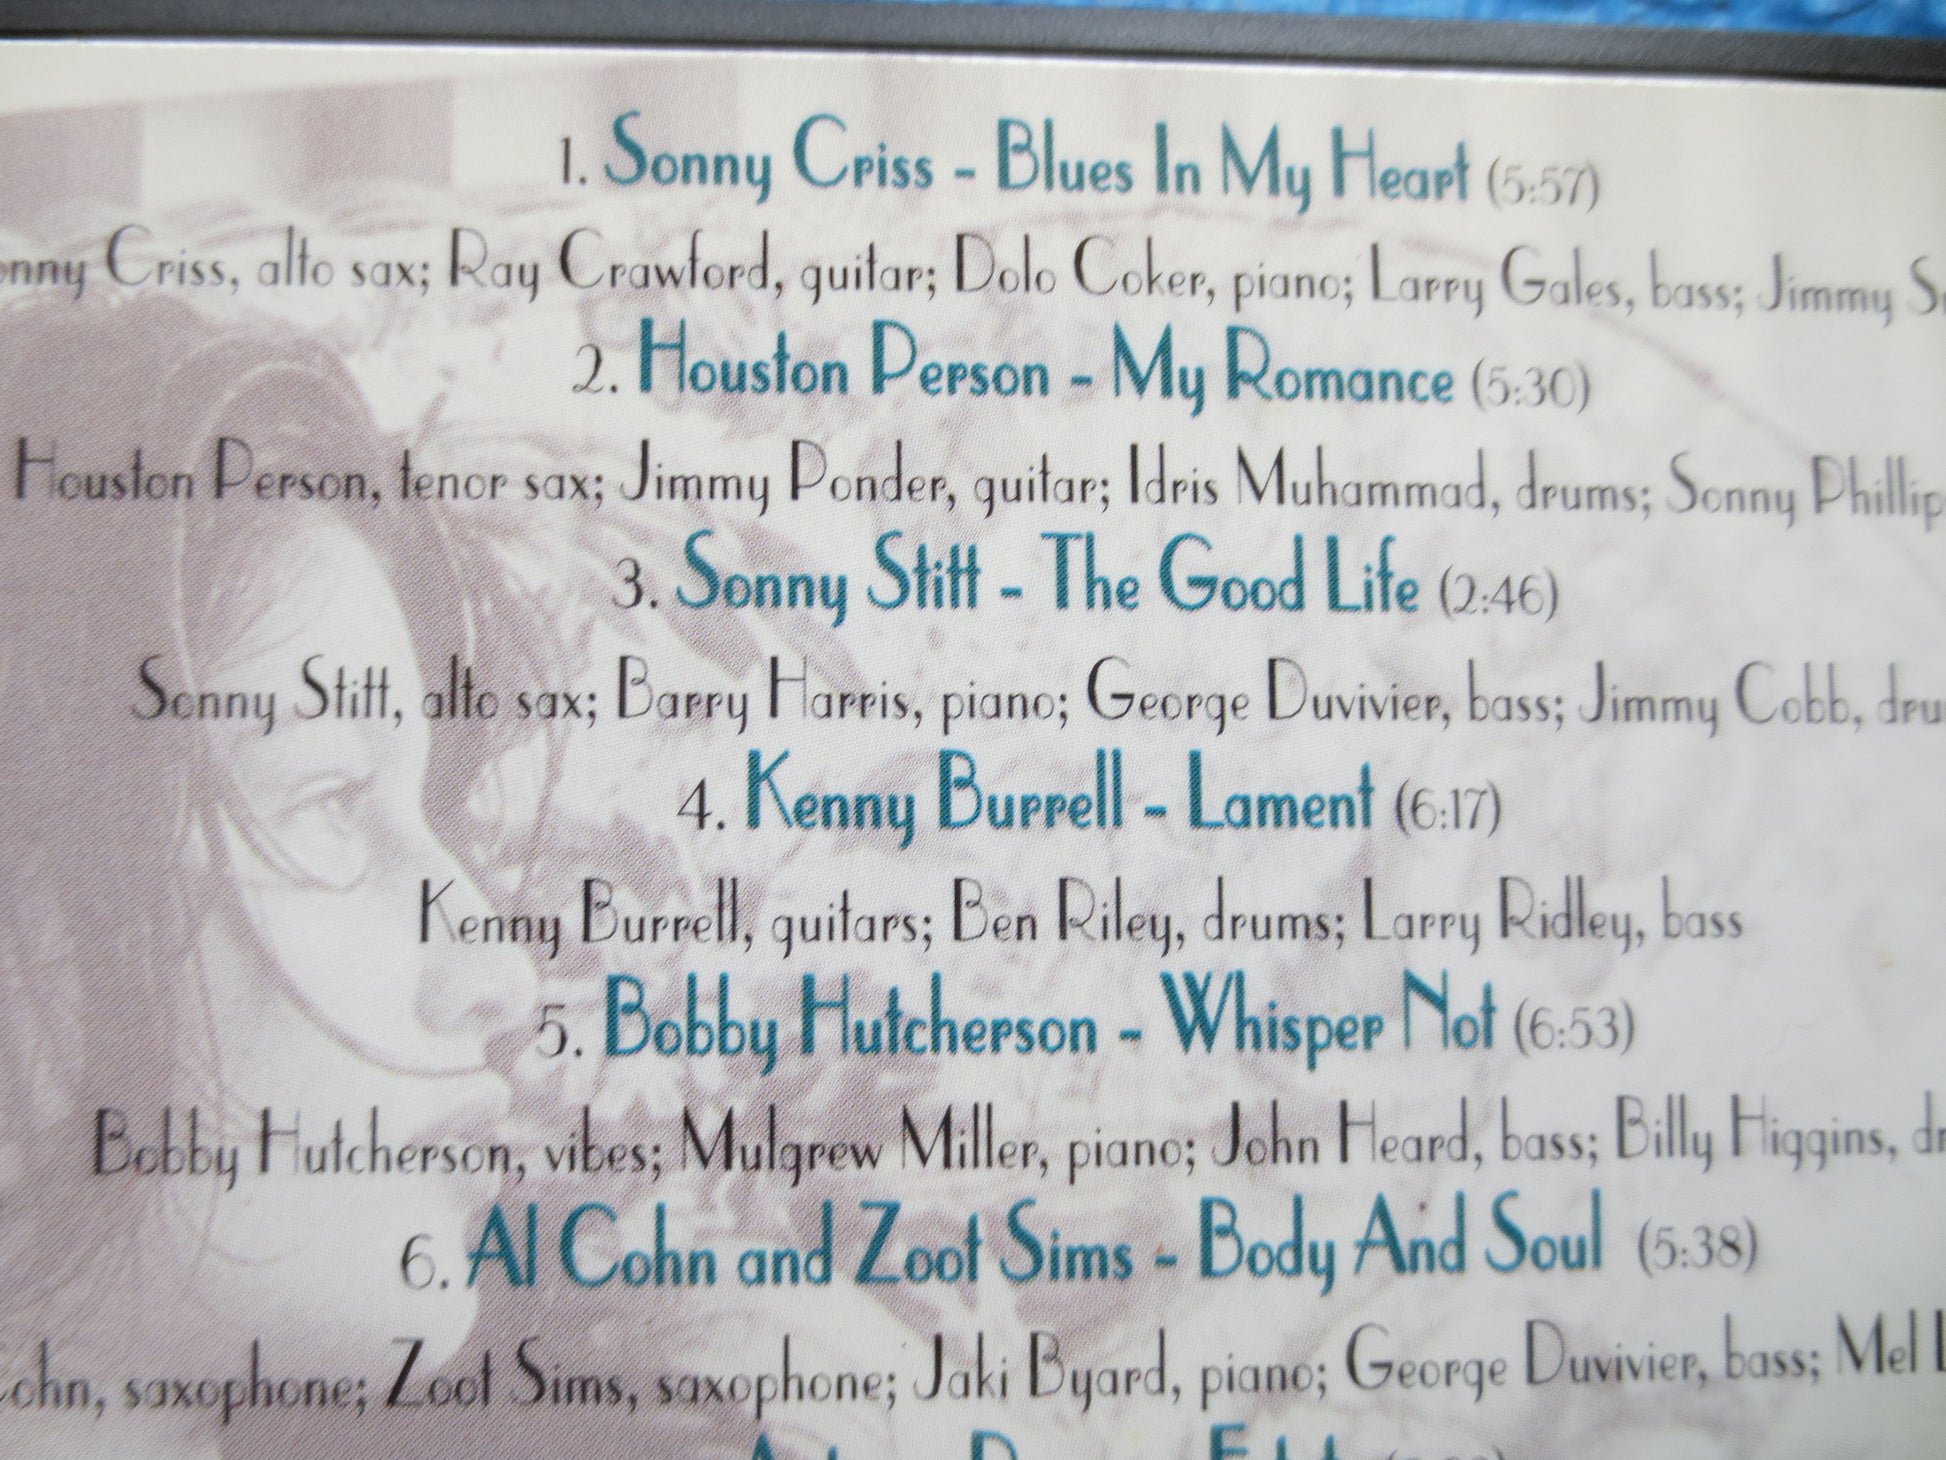 1. Sonny Criss - Blues In My Heart (5:57)
Criss, alto sax; Ray Crawford, guitar; Dolo Coker, piano; Larry Gales, bass; Jimmy
2. Houston Person - My Romance (5:30)
Houston Person, tenor sax; Jimmy Ponder, guitar; Idris Muhammad, drums; Sonny
3. Sonny Stitt - The Good Life (2:46)
Sonny Stitt, alto sax; Barry Harris, piano; George Duvivier, bass; Jimmy Cobb,
4. Kenny Burrell - Lament (6:17)
Kenny Burrell, guitars; Ben Riley, drums; Larry Ridley, bass
5. Bobby Hutcherson - Whisper Not (6:53)
Bobby Hutcherson, vibes; Mulgrew Miller, piano; John Heard, bass; Billy Higgins,
6. Al Cohn and Zoot Sims - Body And Soul (5:38)
Cohn, saxophone; Zoot Sims, saxophone; Jaki Byard, piano; George Duvivier, bass; Mel